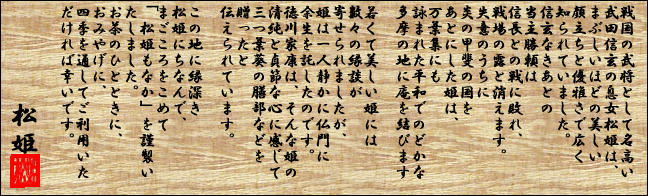 戦国の武将として名高い
武田信玄の息女松姫は、
まぶしいほどの美しい
顔立ちと優雅さで広く
知られていました。
信玄なきあとの
当主勝頼は
信長との戦に敗れ、
戦場の露と消えます。
失意のうちに
炎の甲斐の国を
あとにした松姫は、
万葉集にも
詠まれた平和でのどかな
多摩の地に庵を結びます
若くて美しい姫には
数々の縁談が
寄せられましたが、
姫は一人静かに仏門に
余生を託したのです。
徳川家康は、そんな姫の
清純と貞節な心に感じて
三つ葉葵の膳部などを
贈ったと
伝えられています。
この地に縁深き
松姫にちなんで、
まごころをこめて
「松姫もなか」を謹製い
たしました。
お茶のひとときに、
おみやげに、
四季を通してご利用いた
だければ幸いです。
松姫